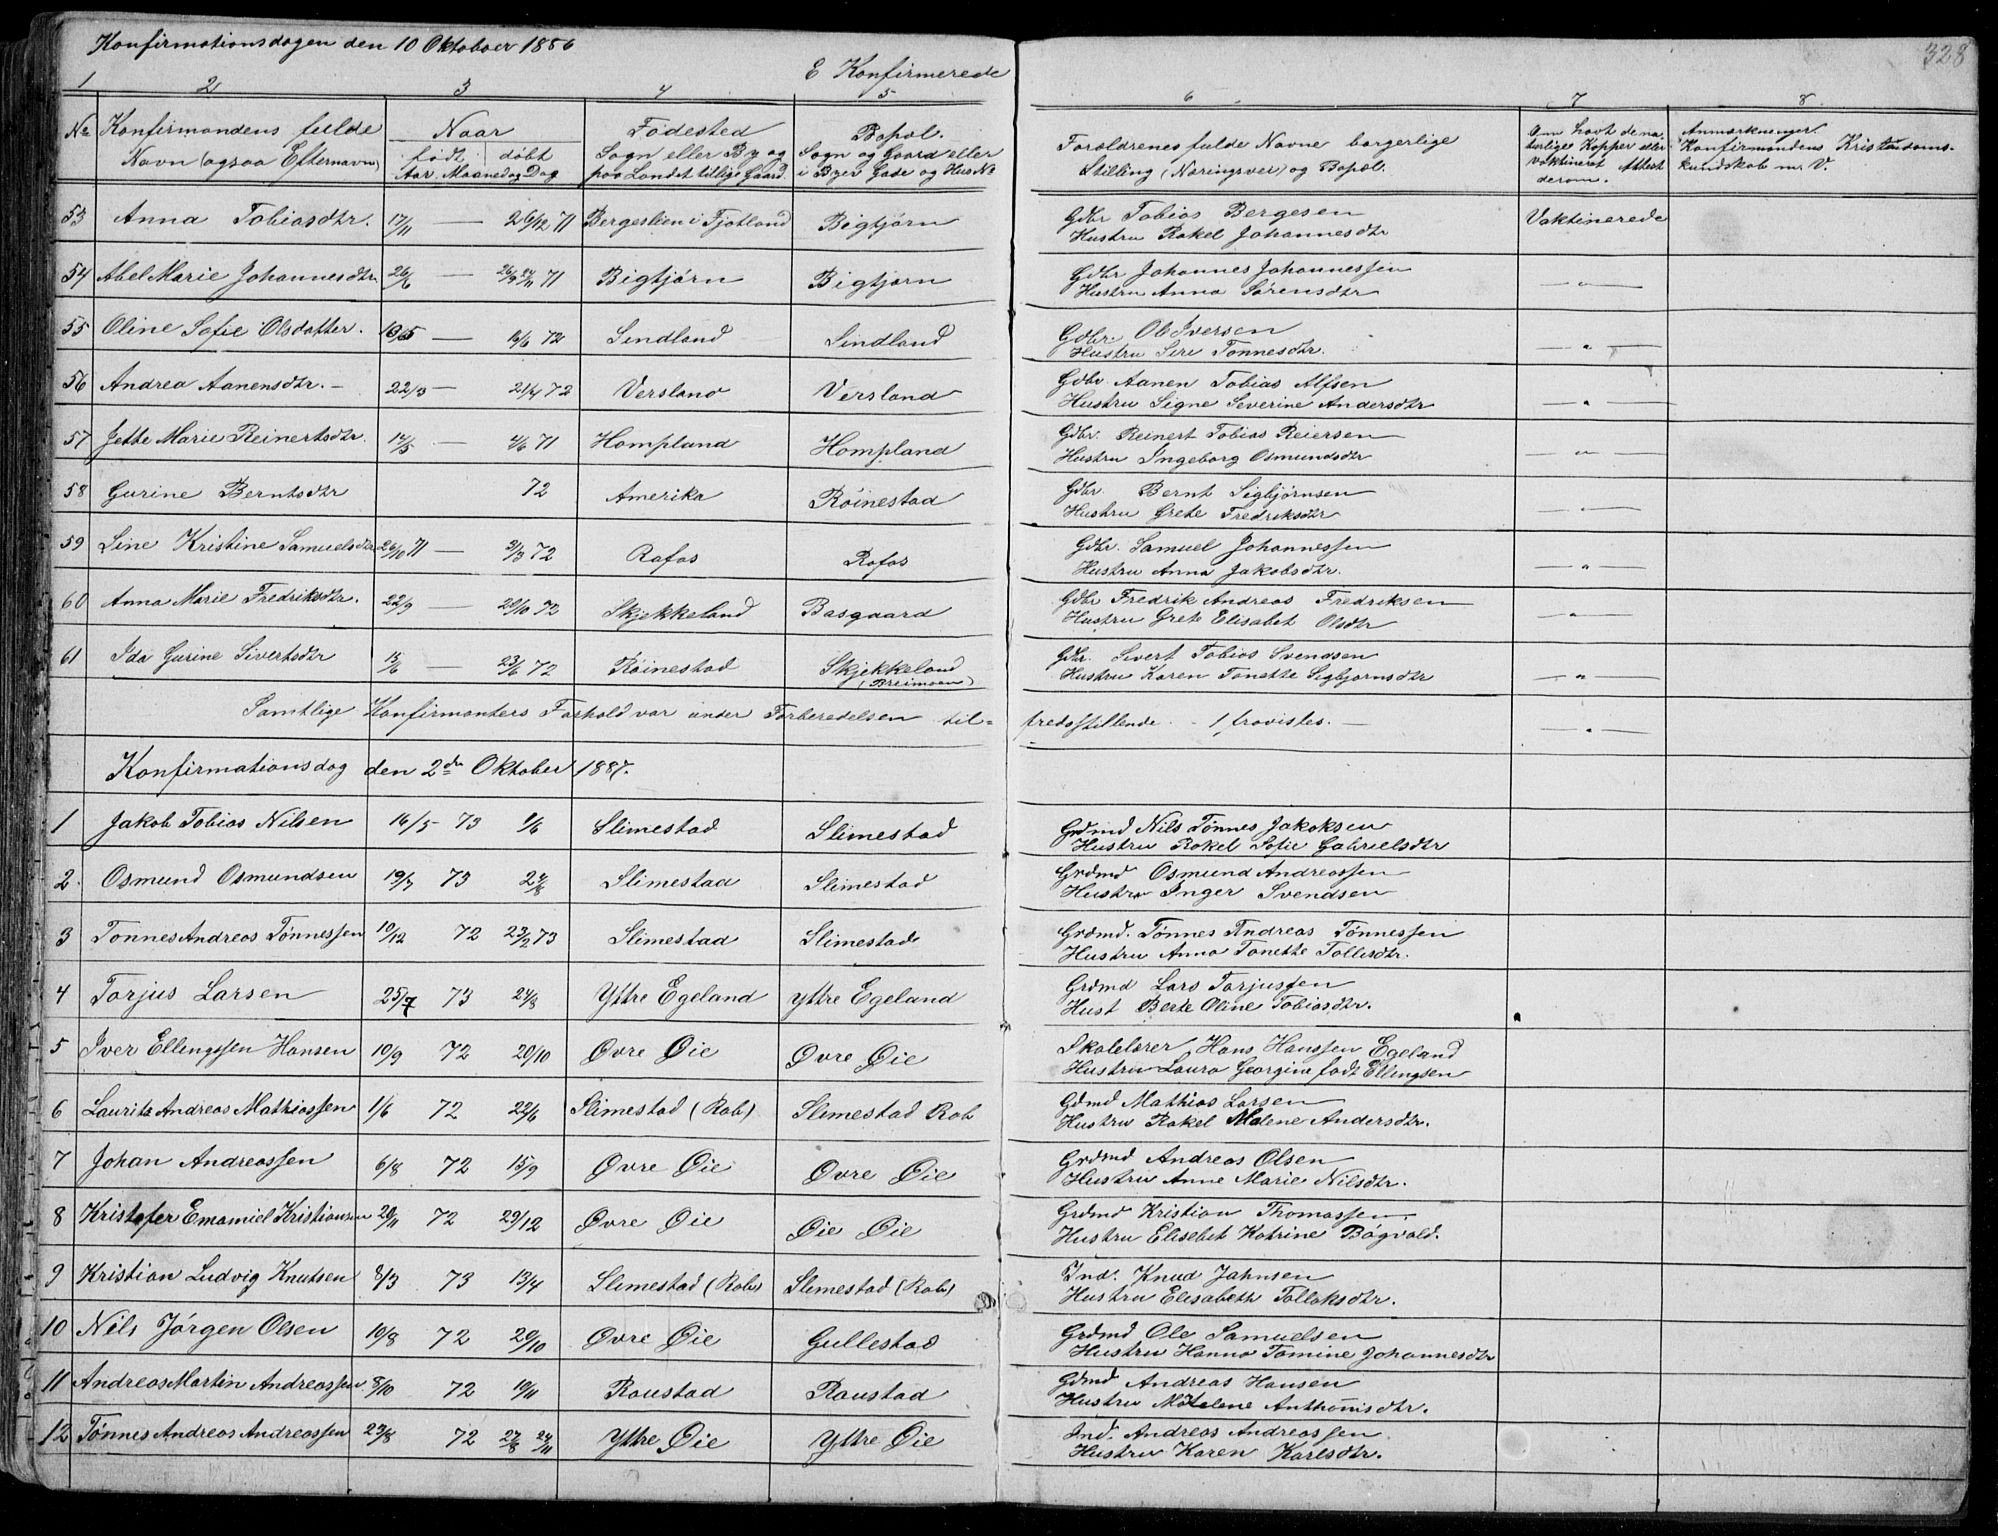 Konfirmationsdagen den 10 Oktober 1886
E Konfirmerede
328
1 2 3 4 5 6 7 8
No Konfirmandens fulde Navn (ogsaa Efternavn) | Naar født Aar, Maaned og Dag | døbt | Fødested Sogn eller By og paa Landet tillige Gaard. | Bopæl. Sogn og Gaard eller i Byer Gade og Hus No | Forældrenes fulde Navne borgerlige Stilling (Næringsvei) og Bopæl. | Om havt de naturlige Kopper eller vaktineret Attest derom. | Anmærkninger. Konfirmandens Kristendomskundskab m. V.
53 Anna Tobiasdtr. 17/11 — 26/12 71 Bergeslien i Fjotland Bigtjørn Gdbr Tobias Bergesen Vaktinerede
Hustru Rakel Johannesdtr
54 Abel Marie Johannesdtr 26/6 — 71 Bigtjørn Bigtjørn Gdbr Johannes Johannessen — " —
Hustru Anna Sørensdtr
55 Oline Sofie Olsdatter. — 72 Sindland Sindland Gdbr. Ol Iversen — " —
Hustru Siri Tønnesdtr.
56 Andrea Aanensdtr. — 22/3 — 21/4 72 Versland Versland Gdbr. Aanen Tobias Alfsen — " —
Hustru Signe Severine Andersdtr
57 Jette Marie Reinertsdtr. — 4/6 71 Hompland Hompland Gdbr. Reinert Tobias Reiersen — " —
Hustru Ingeborg Osmundsdtr
58 Gurine Berntsdtr 72 Amerika Röinestad Gdbr. Bernt Sigbjørnsen — " —
Hustru Grete Fredriksdtr
59 Line Kristine Samuelsdtr 26/10 71 — 3/3 72 Rafos Rafos Gdbr. Samuel Johannessen — " —
Hustru Anna Jakobsdtr.
60 Anna Marie Fredriksdtr. 22/9 — 72 Skjekkeland Basgaard Gdbr Fredrik Andreas Fredriksen — " —
Hustru Grete Elisabet Olsdtr
61 Ida Gurine Sivertsdtr 15/6 — 23/6 72 Röinestad Skjekkeland (Breimoen) Gdbr. Sivert Tobias Svendsen — " —
Hustru Karen Tonette Sigbjørnsdtr
Samtlige Konfirmanters Forhold var under Forberedelsen til= fredsstillende. - 1 fravistes. — — " —
Konfirmationsdag den 2den Oktober 1887.
1 Jakob Tobias Nilsen 16/5 73 1/6 Slimestad Slimestad Grdmd Nils Tønnes Jakobsen
Hustru Rakel Sofie Gabrielsdtr
2. Osmund Osmundsen 19/7 73 24/8 Slimestad Slimestad Grdmd Osmund Andreassen
Hustru Inger Svendsen
3 Tønnes Andreas Tønnessen 10/12 72 23/2 73 Slimestad Slimestad Grdmd. Tønnes Andreas Tønnessen
Hustru Anna Tonette Tollesdtr.
4 Torjus Larsen 25/7 73 24/8 Yttre Egeland Yttre Egeland Grdmd Lars Torjussen
Hust Berte Oline Tobiasdtr.
5 Iver Ellingssen Hansen 10/9 72 20/10 Øvre Øie Øvre Øie Skolelærer Hans Hanssen Egeland
Hustru Laura Georgine født Ellingsen
6 Lauritz Andreas Mathiassen 1/6 72 22/6 Slimestad (Rab) Slimestad Rab Gdmd Mathias Larsen
Hustru Rakel Malene Andersdtr.
7 Johan Andreassen 6/8 72 15/9 Øvre Øie Øvre Øie Grdmd Andreas Olsen
Hustru Anne Marie Nilsdtr.
8 Kristofer Emanuel Kristiansen 20/11 72 29/12 Øvre Øie Øie Øie Grdmd Kristian Thomassen
Hustru Elisebet Katrine Bøgvald.
9 Kristian Ludvig Knutsen 8/3 73 13/4 Slimestad (Rab) Slimestad (Rab) Ind. Knud Jahnsen
Hustru Elisabeth Tollaksdtr.
10 Nils Jørgen Olsen 10/8 72 20/10 Øvre Øie Gullestad Grdmd Ole Samuelsen
Hustru Hanna Tomine Johannesdtr
11 Andreas Martin Andreassen 8/10 72 10/11 Raustad Raustad Gdmd Andreas Hansen
Hustru Anthonisdtr.
12 Tønnes Andreas Andreassen 23/8 72 27/8 24/11 Yttre Øie Yttre Øie Ind. Andreas Andreassen
Hustru Karen Karlsdtr.